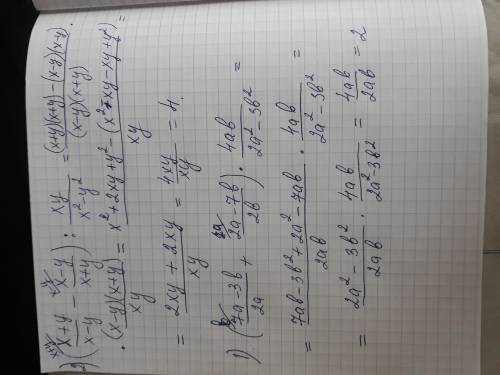 2) ((x+y)/(x-y) - (x-y)/(x+y)) : xy/(x²-y²) = ((x+y)(x+y)-(x-y)(x-y))/((x-y)(x+y)) ·
· (x-y)(x+y)/xy = (x²+2xy+y²-(x²-xy-xy+y²))/xy =
= (2xy+2xy)/xy = 4xy/xy = 4.
1) ((7a-3b)/2a + (2a-7b)/2b) · 4ab/(2a²-3b²) =
= (7ab-3b²+2a²-7ab)/2ab · 4ab/(2a²-3b²) =
= (2a²-3b²)/2ab · 4ab/(2a²-3b²) = 4ab/2ab = 2